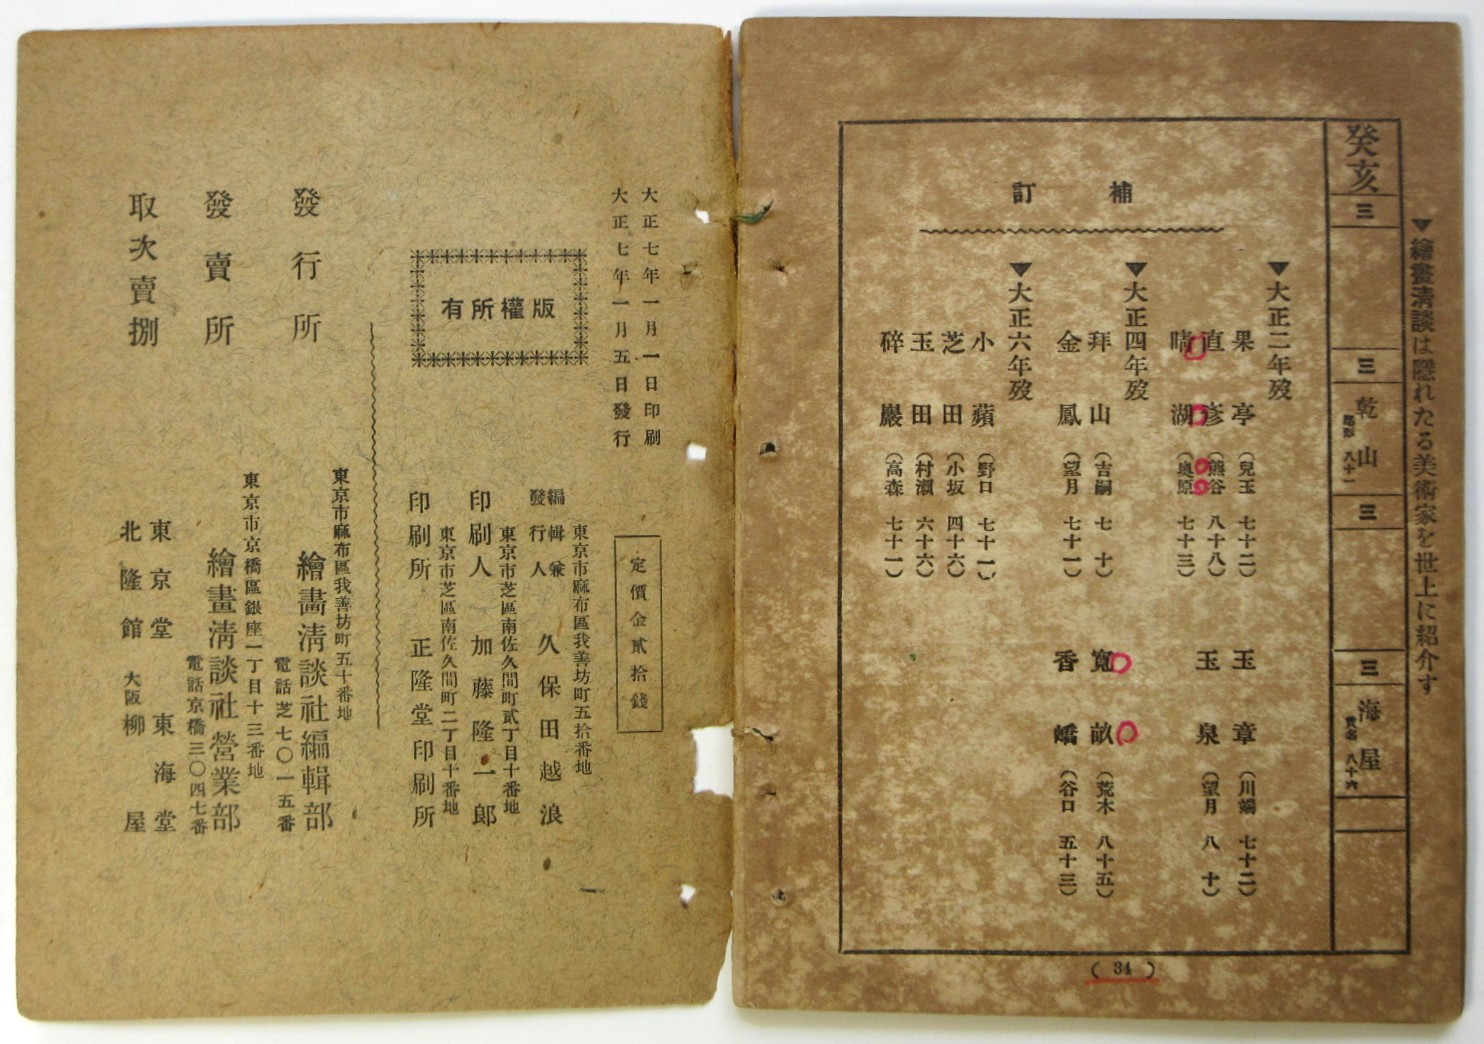 ▼繪畫淸談は隱れたる美術家を世上に紹介す
癸亥
三
三
乾山
尾形 八十一
三
三
海屋
貫名 八十六
補訂
▼大正二年歿
果亭(兒玉 七十二)
玉章(川端 七十二)
直彦(熊谷 八十八)
玉泉(望月 八十)
晴湖(奥原 七十三)
▼大正四年歿
拜山(吉嗣 七十)
寬畝(荒木 八十五)
金鳳(望月 七十一)
香嶠(谷口 五十三)
▼大正六年歿
小蘋(野口 七十一)
芝田(小坂 四十六)
玉田(村瀬 六十六)
碎巖(高森 七十一)
(34)
大正七年一月一日印刷
大正七年一月五日發行
定價金貳拾錢
版權所有
東京市麻布區我善坊町五拾番地
編輯兼發行人 久保田越浪
東京市芝區南佐久間町貳丁目十番地
印刷人 加藤隆一郎
東京市芝區南佐久間町二丁目十番地
印刷所 正隆堂印刷所
東京市麻布區我善坊町五十番地
發行所 繪畵淸談社編輯部
電話芝七〇一五番
東京市京橋區銀座一丁目十三番地
發賣所 繪畫淸談社營業部
電話京橋三〇四七番
取次賣捌
東京堂 東海堂
北隆館 大阪柳屋